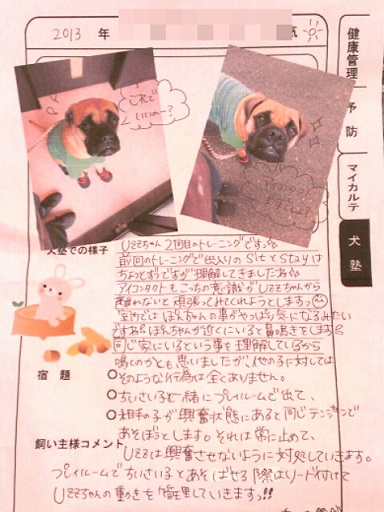 2013 年
健康管理
予防
マイカルテ
犬塾
これで
いいの～?
アイコンタクト
犬塾での様子
Uzzちゃん 2回目のトレーニングです。
前回のトレーニングで出入りのSitとStayは
ちょっとずつですが理解してきましたね
アイコンタクトもこっちの意識がUzzちゃんから
離れないと頑張ってみてくれようとします。
室内では ぽんちゃんの事がやっぱり気になるみたい
ですね。ぽんちゃんが近くにいると鼻鳴きをします
同じ家にいるという事を理解しているから
鳴くのかとも思いましたが、他の子に対しては
そのような行為は全くありません。
宿題
ちいさいると一緒にプレイルームで出て、
相手の子が興奮状態にあると同じテンションで
あそぼうとします。それは常に止めて、
飼い主様コメント
Uzzは興奮させないように対処していきます。
プレイルームでちいさいるとあそばせる際はリード付けて
Uzzちゃんの動きを管理していきます!!